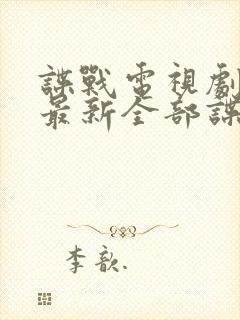 諜戰電視劇
最新全部諜
李歆.